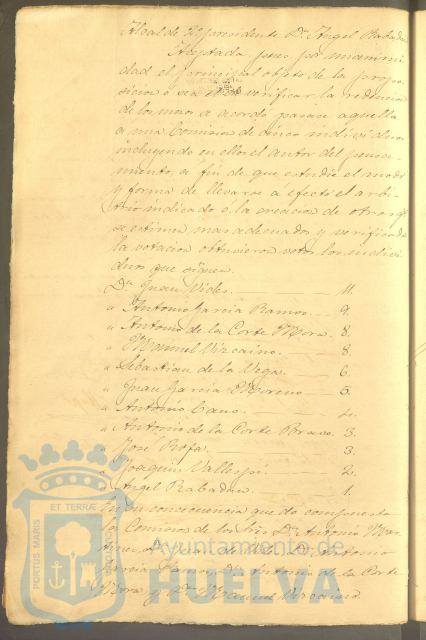 Alcalde Vicepresidente Dn. Angel Rabadan
Aceptada pues por unanimi-
dad el principal objeto de la propo-
sicion o sea el de verificar la redencion
de los mozos se acordó pasase aquella
a una Comision de cinco individuos
incluyendo en ellos el autor del pensa-
miento, a fin de que estudie el modo
y forma de llevarse a efecto el arbi-
trio indicado ó la creacion de otros qe
se estimen mas adecuados, y verificada
la votacion obtuvieron votos los indivi-
duos que siguen.
Dn Juan Vides. 11.
" Antonio Garcia Ramos. 9.
" Antonio de la Corte Mora. 8.
" Manuel Vizcaino. 8.
" Sebastian de la Vega. 6.
" Juan Garcia Moreno. 5.
" Antonio Cano.
" Antonio de la Corte Bravo. 3.
" José Rofa. 3.
" Joaquin Vallejo. 2.
" Angel Rabadan. 1.
En su conciciencia quedo compuesta
la Comision de los Sres Dn Antonio Mar-
Dn Juan Dn Antonio
Garcia Ramos, Dn Antonio de la Corte
Mora y Dn Manuel Vizcaino
ET TERRÆ
PORTUS MARIS
CUSTODIA
Ayuntamiento de
HUELVA